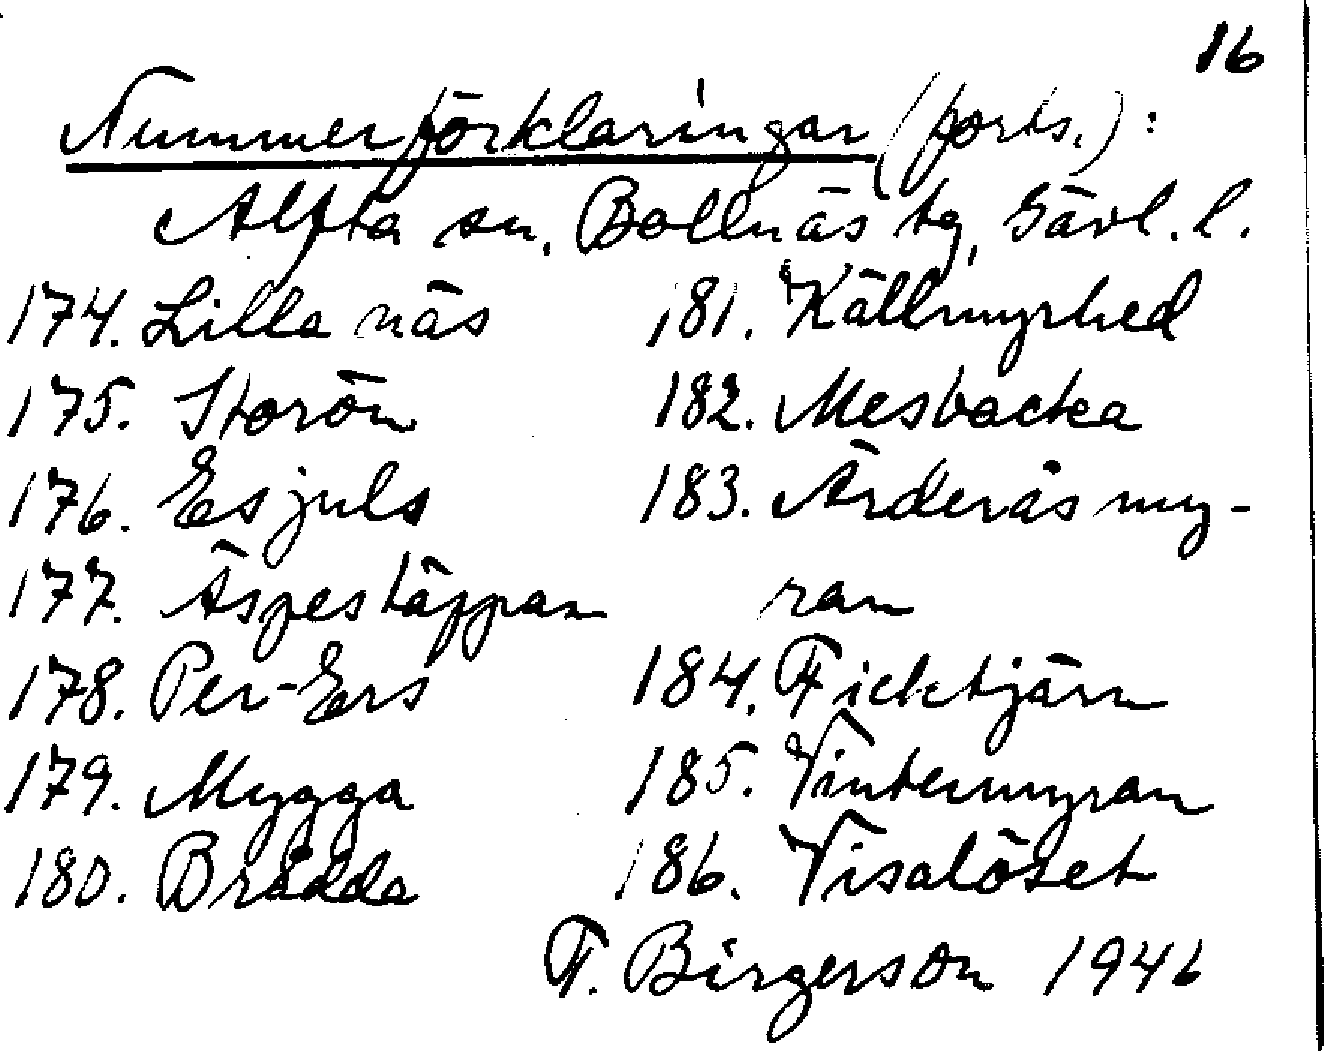 16
Nummerförklaringar (forts.):
Alfta sn, Bollnäs tg, Gävl. l.
174. Lilla näs
175. Storön
176. Esjuls
177. Äspestäppan
178. Per-Ers
179. Mygga
180. Brädda
181. Källmyrhed
182. Mesbacka
183. Ärderäsmy-
ran
184. Ficktjärn
185. Vintermyran
186. Visalöset
F. Birgerson 1946